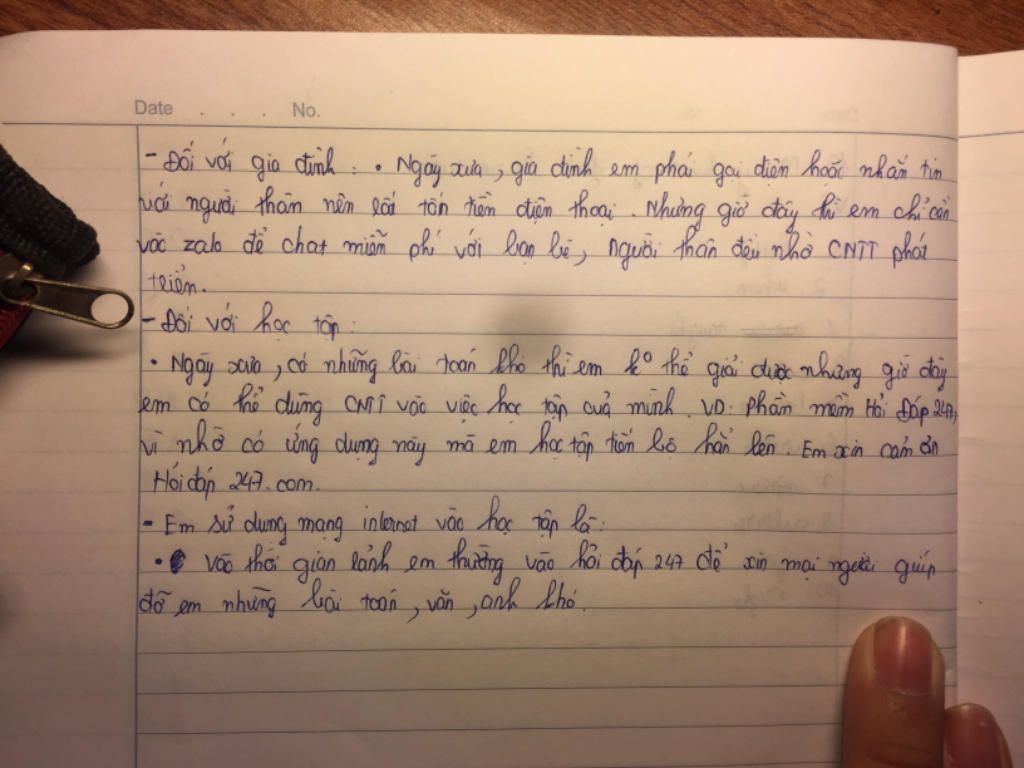 Date . . . No.
- Đối với gia đình : • Ngày xưa, gia đình em phải gọi điện hoặc nhắn tin
với người thân nên rất tốn tiền điện thoại. Nhưng giờ đây thì em chỉ cần
vào zalo để chat miễn phí với bạn bè, người thân đều nhờ CNTT phát
triển.
- Đối với học tập :
• Ngày xưa, có những bài toán khó thì em k° thể giải được nhưng giờ đây
em có thể dùng CNTT vào việc học tập của mình. VD: Phần mềm Hỏi Đáp 247,
vì nhờ có ứng dụng này mà em học tập tiến bộ hẳn lên. Em xin cảm ơn
Hỏi đáp 247.com.
- Em sử dụng mạng internet vào học tập là:
• vào thời gian rảnh em thường vào hỏi đáp 247 để xin mọi người giúp
đỡ em những bài toán, văn, anh khó.